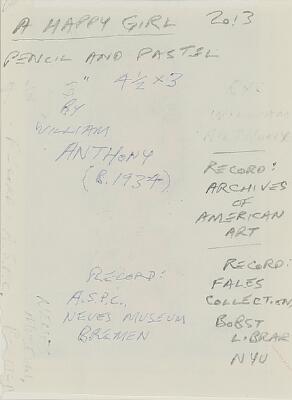 A HAPPY GIRL 2013
PENCIL AND PASTEL
5" 4½ × 3
BY
WILLIAM
ANTHONY
(B. 1934)
RECORD:
ARCHIVES
OF
AMERICAN
ART
RECORD:
FALES
COLLECTION,
BOBST
LIBRAR
NYU
RECORD:
A.S.P.C.,
NEUES MUSEUM
BREMEN